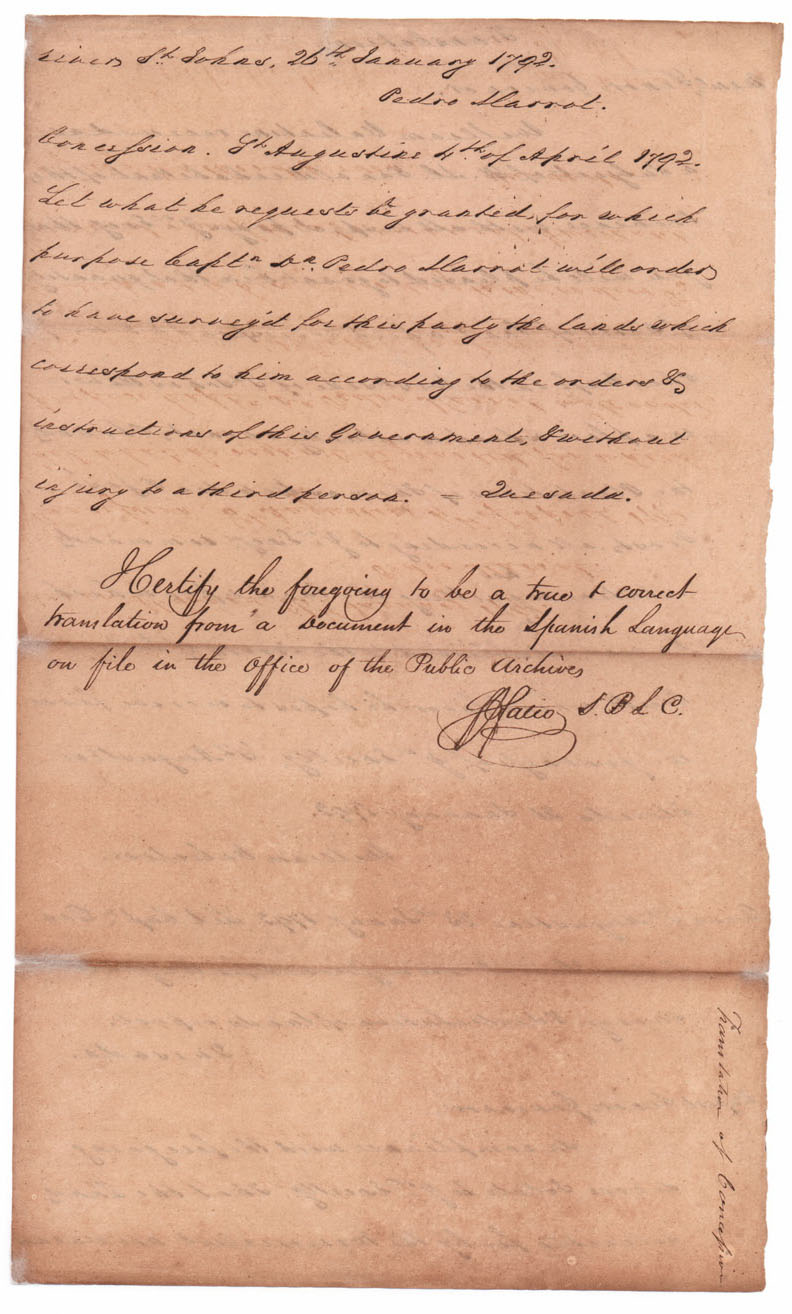 river St. Johns, 26th January 1792.
Pedro Marrot.
Concession. St. Augustine 4th of April 1792.
Let what he requests be granted, for which
purpose Captn Dn. Pedro Marrot will order
to have survey'd for this party the lands which
correspond to him according to the orders &
instructions of this Government, & without
injury to a third person. = Quesada.
I Certify the foregoing to be a true & correct
translation from a Document in the Spanish Language
on file in the Office of the Public Archives
S. B. L. C.
Translation of Concession